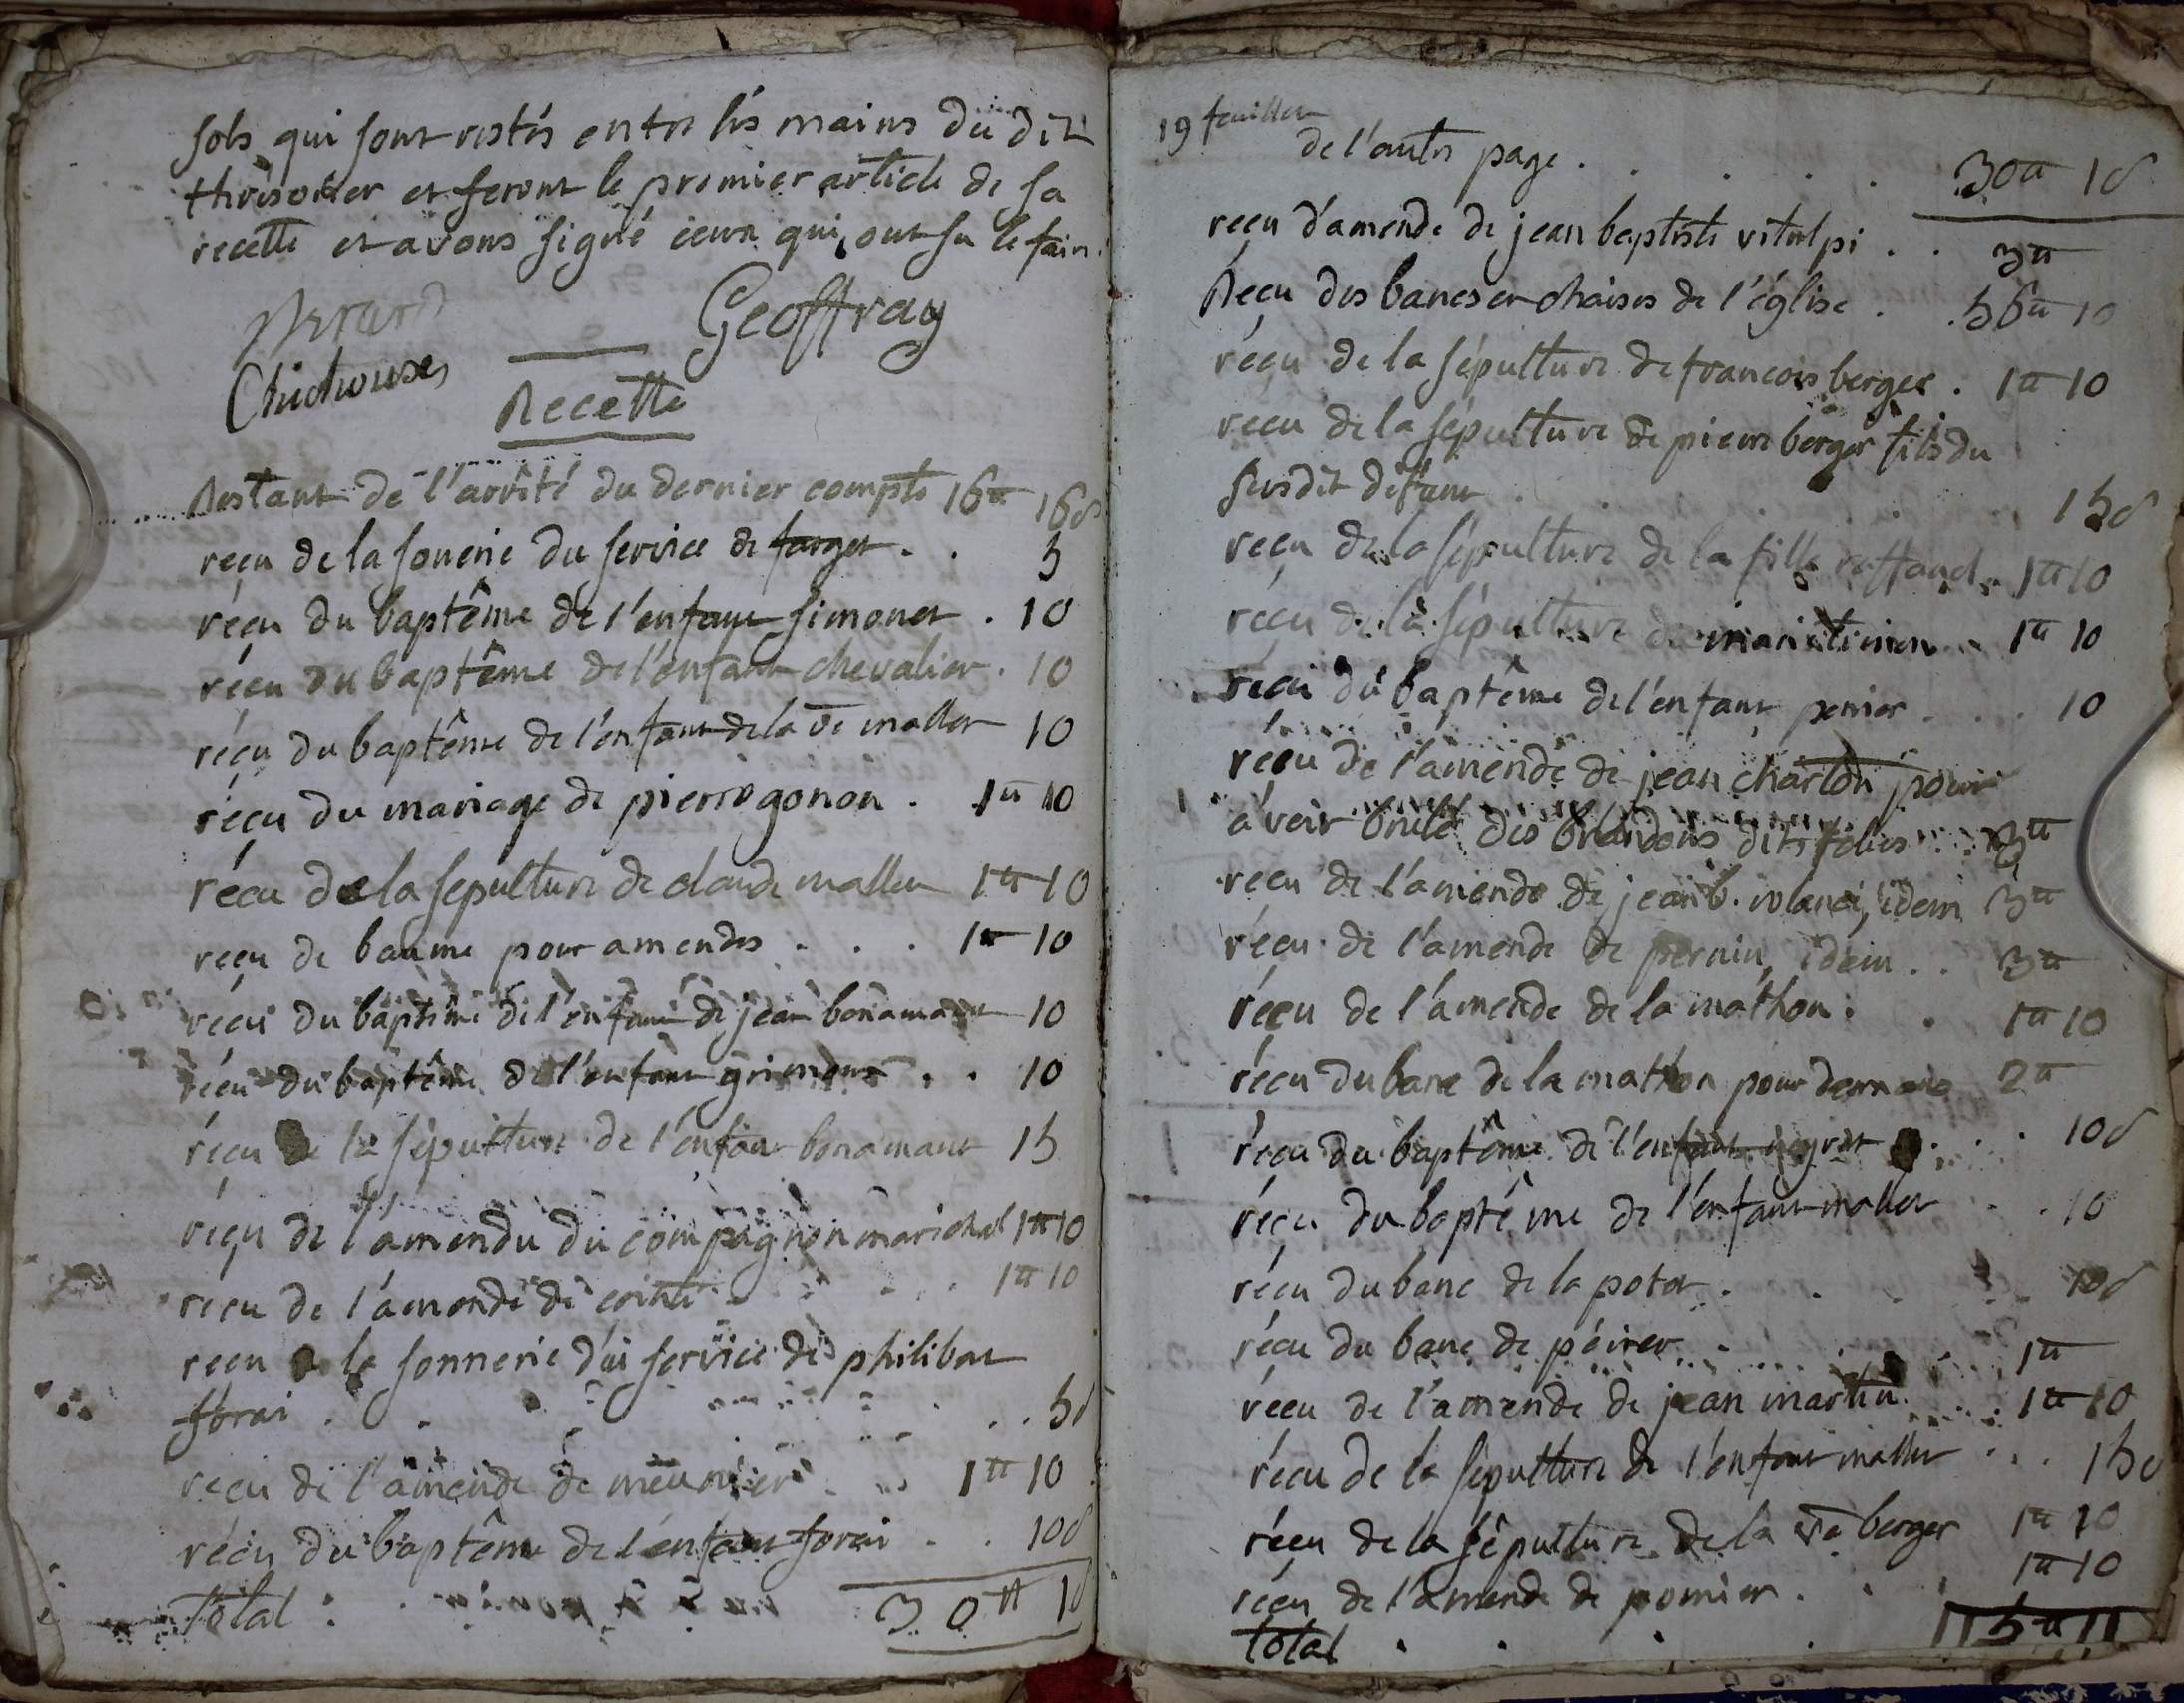 sols qui sont restés entre les mains du dit
thrésorier et feront le premier article de sa
recette et avons signé ceux qui ont su le fair.
Geoffray
Recette
Restant de l'arrêté du dernier compte 16tt 16s
reçu de la sonerie du service de farget . . 5
reçu du baptême de l'enfant simonet . 10
reçu du baptême de l'enfant chevalier . 10
reçu du baptême de l'enfant de la ve mallet 10
reçu du mariage de pierre gonon . 1tt 10
reçu de la sépulture de claude mallet 1tt 10
reçu de baume pour amendes . . . 1tt 10
reçu du baptême de l'enfant de jean bonamant 10
reçu du baptême de l'enfant grimont . . 10
reçu de la sépulture de l'enfant bonamant 15
reçu de l'amendu du compagnon marichal 1tt 10
reçu de l'amende de 1tt 10
reçu de la sonnerie du service de philibert
forai . . . . . 5s
reçu de l'amende de meunier . . 1tt 10
reçu du baptême de l'enfant forai . . 10s
Total : 30tt 1s
19 feuillet
de l'autre page . . . . . 30tt 1s
reçu d'amende de jean baptiste . . 3tt
Reçu des bancs et chaises de l'église . . 56tt 10
reçu de la sépulture de francois berger . 1tt 10
reçu de la sépulture de pierre berger fils du
susdit défunt . . . . 15s
reçu de la sépulture de la fille raffaud . 1tt 10
reçu de la sépulture de 1tt 10
reçu du baptême de l'enfant perrier . . . 10
reçu de l'amende de jean charlon pour
avoir brulé des brandons dits folies . . 3tt
reçu de l'amende de jean b. idem 3tt
reçu de l'amende de pernin, idem . . 3tt
reçu de l'amende de la mathon . . 1tt 10
reçu du banc de la mathon pour 2tt
reçu du baptême de l'enfant . . . 10s
reçu du baptême de l'enfant mallet . . 10
reçu du banc de la potet . . . . 10s
reçu du banc de . . . 1tt
reçu de l'amende de jean martin . . . 1tt 10
reçu de la sépulture de l'enfant mallet . . . 15s
reçu de la sépulture de la ve berger 1tt 10
reçu de l'amende de pomier . . . 1tt 10
total . . . . 115tt 11